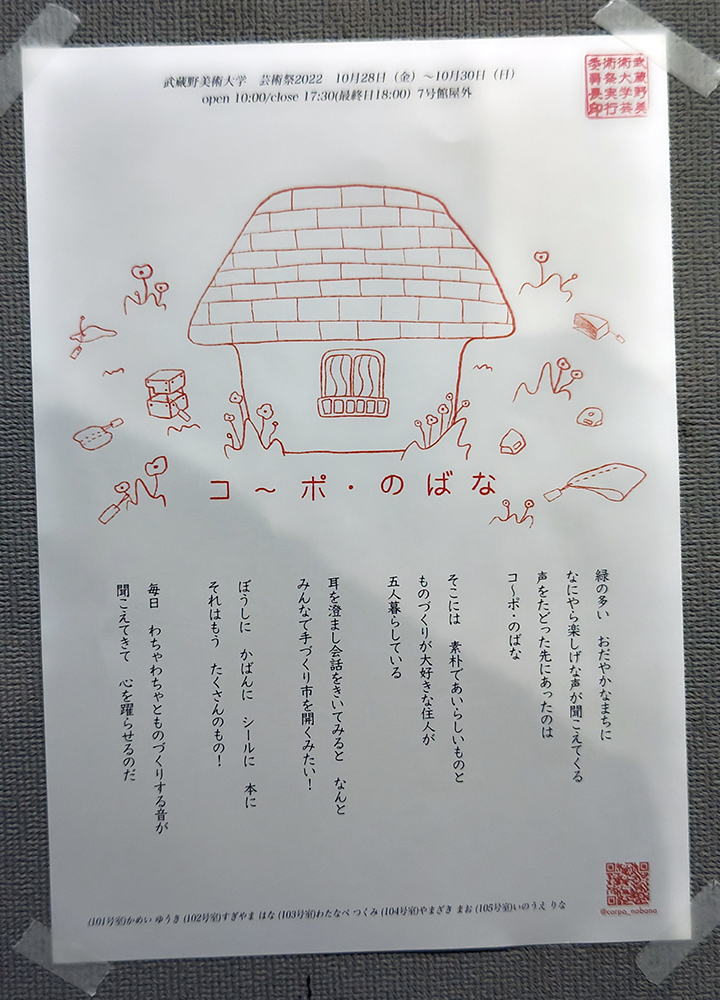 武蔵野美術大学　芸術祭2022　10月28日（金）～10月30日（日）
open 10:00/close 17:30(最終日18:00) 7号館屋外
武蔵野美
術大学芸
術祭実行
委員長印
コ～ポ・のばな
緑の多い　おだやかなまちに
なにやら楽しげな声が聞こえてくる
声をたどった先にあったのは
コ～ポ・のばな
そこには　素朴であいらしいものと
ものづくりが大好きな住人が
五人暮らしている
耳を澄まし会話をきいてみると　なんと
みんなで手づくり市を開くみたい！
ぼうしに　かばんに　シールに　本に
それはもう　たくさんのもの！
毎日　わちゃわちゃとものづくりする音が
聞こえてきて　心を躍らせるのだ
@corpo_nobana
(101号室)かめい ゆうき (102号室)すぎやま はな (103号室)わたなべ つくみ (104号室)やまざき まお (105号室)いのうえ りな